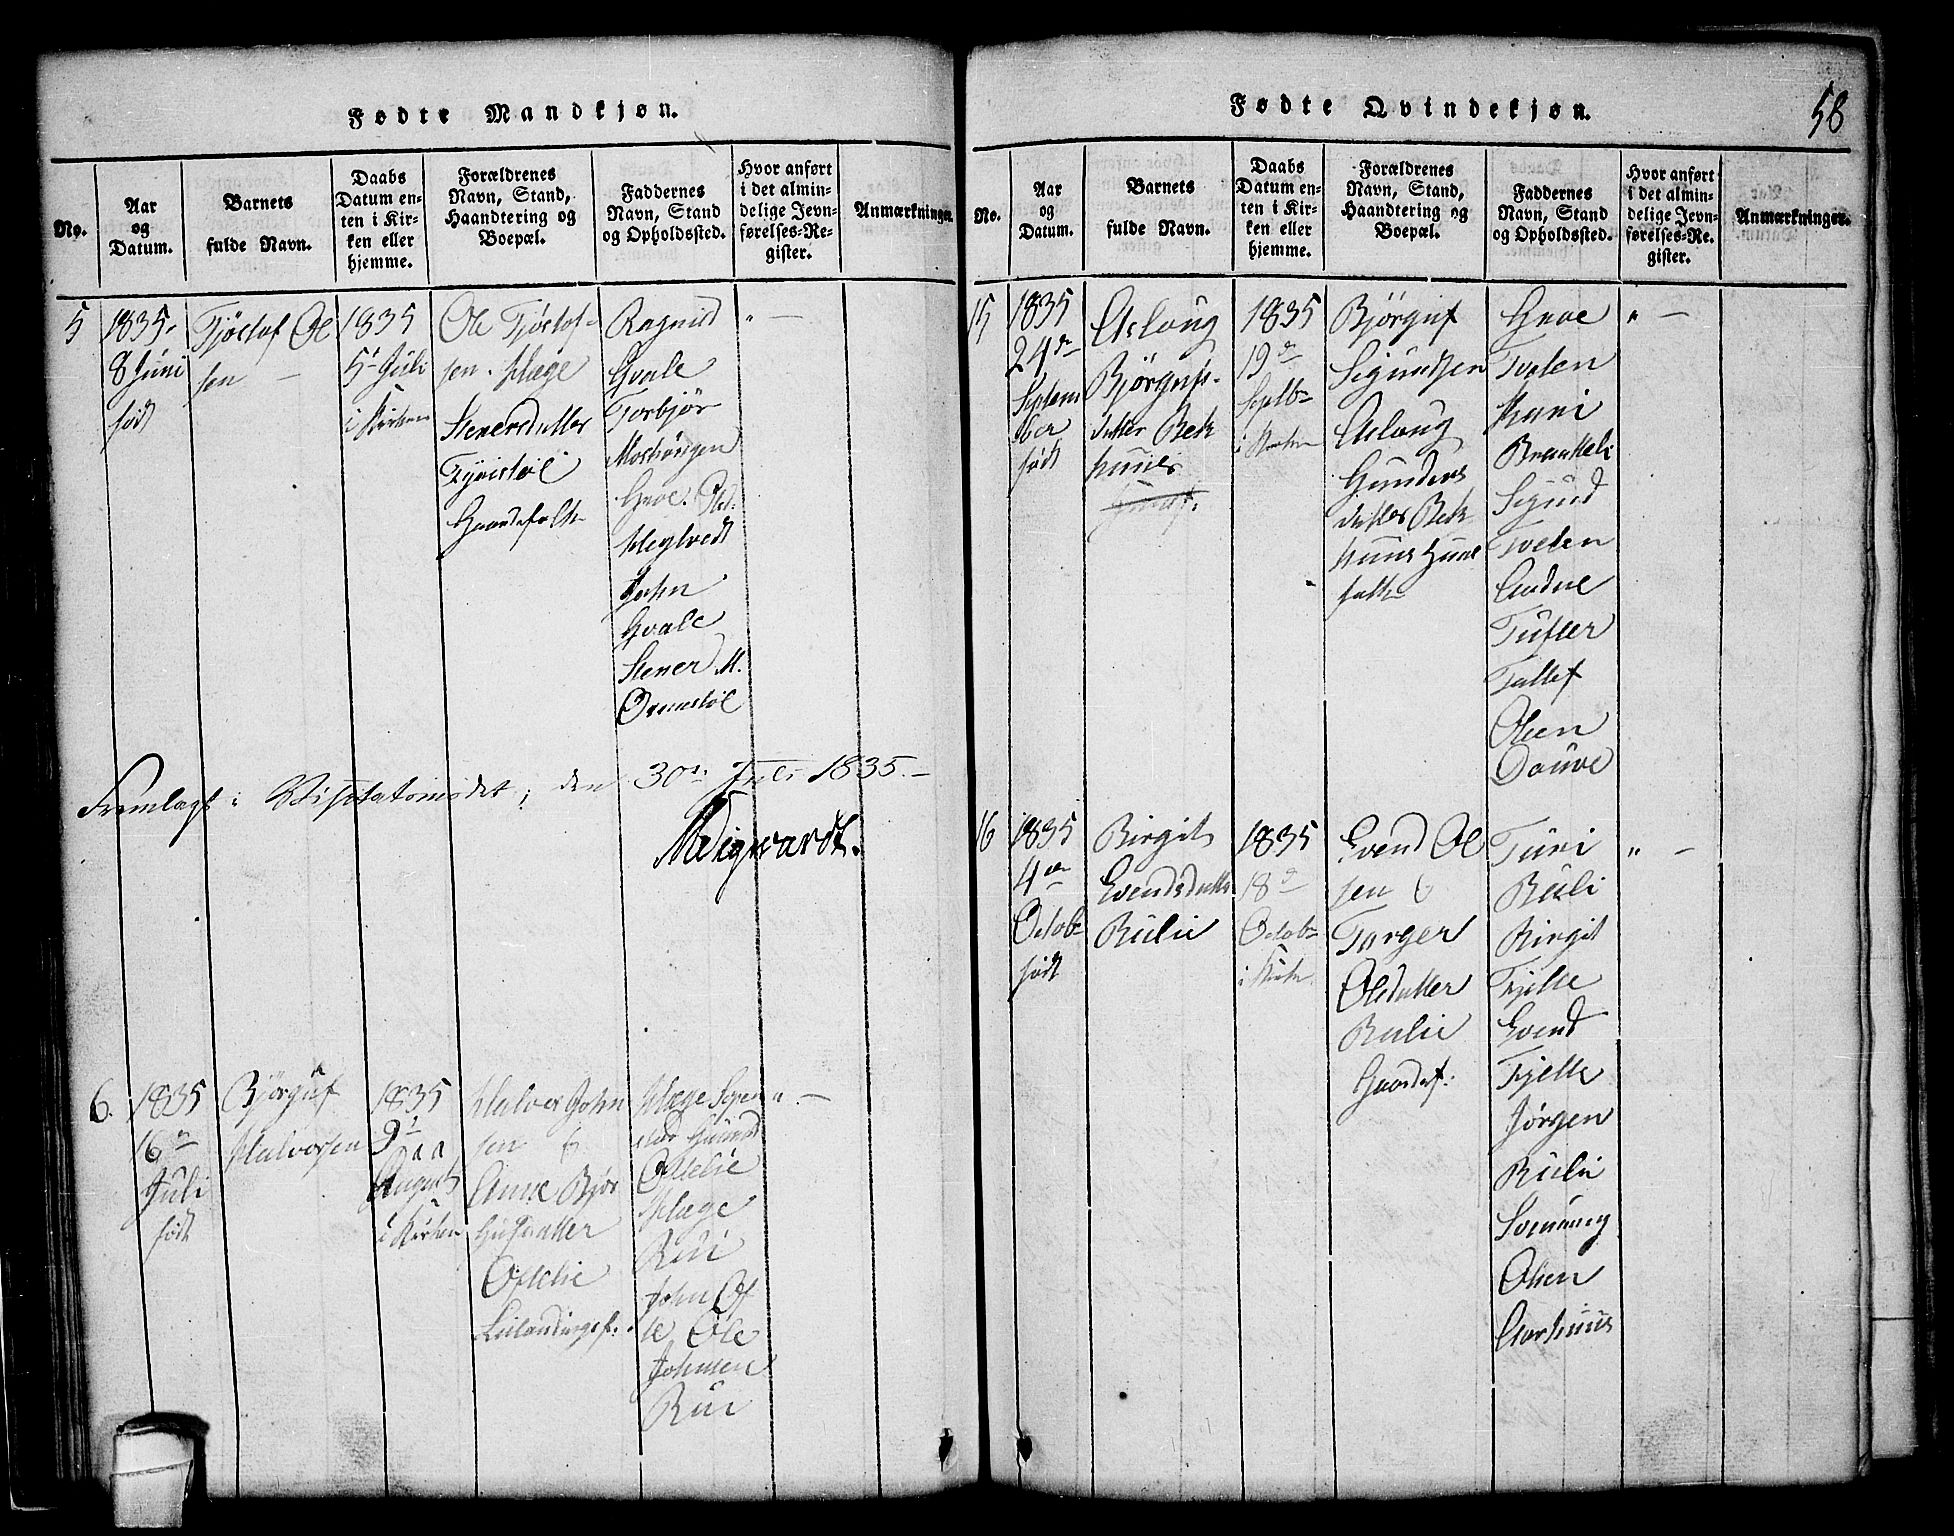 Fødte Mandkjøn.
No.
Aar
og
Datum.
Barnets
fulde Navn.
Daabs
Datum en-
ten i Kir-
ken eller
hjemme.
Forældrenes
Navn, Stand,
Haandtering og
Boepæl.
Faddernes
Navn, Stand
og Opholdssted.
Hvor anført
i det almin-
delige Jevn-
førelses-Re-
gister.
Anmærkninger.
5
1835.
8 Juni
født
Tjøstof Ol
sen —
1835
5t Juli
i Kirken
Ole Tjøstof-
sen. Hæge
Stenersdatter
Tyristøl
Gaardefolk
Ragnild
Hvale
Torbjør
Moshougen
Groe. Ols.
Heglvedt
John
Hvale
Stener M.
Ormestøl
" —
Fremlagt i Visitatsmødet, den 30te Juli 1835. —
6.
1835
16de
Juli
født
Bjørguf
Halvorsen
1835
9t
August
i Kirken
Halvor John
sen &
Anne Bjør
gufsdatter
Oftelie
Leilændingsf.
Hæge
Oftelie
Hæge
Rui
John Of
te Ole
Johnsen
Rui
" —
Fødte Qvindekjøn.
58
No.
Aar
og
Datum.
Barnets
fulde Navn.
Daabs
Datum en-
ten i Kir-
ken eller
hjemme.
Forældrenes
Navn, Stand,
Haandtering og
Boepæl.
Faddernes
Navn, Stand
og Opholdssted.
Hvor anført
i det almin-
delige Jevn-
førelses-Re-
gister.
Anmærkninger.
15
1835
24de
Septem
ber
født
Aslaug
Bjørgufs-
datter Bek
huus
1835
19de
Septbr
i Kirken
Bjørguf
Sigundsen
Aslaug
Gunders
datter Bek
huus Huus
folk
Groe
Tveten
Kari
Braakeli
Sigund
Tveten
Andne
Tufter
Tallef
Olsen
" —
16
1835
4de
Octob
født
Birgit
Evendsdatter
Rulie
1835
18de
Octob
i Kirken
Evend Ol
sen &
Torger
Olsdatter
Rulie
Gaardef.
Turi
Ruli
Birgit
Fjelle
Evend
Fjelle
Jørgen
Rulie
Svenung
Olsen
Aarhuus
" —